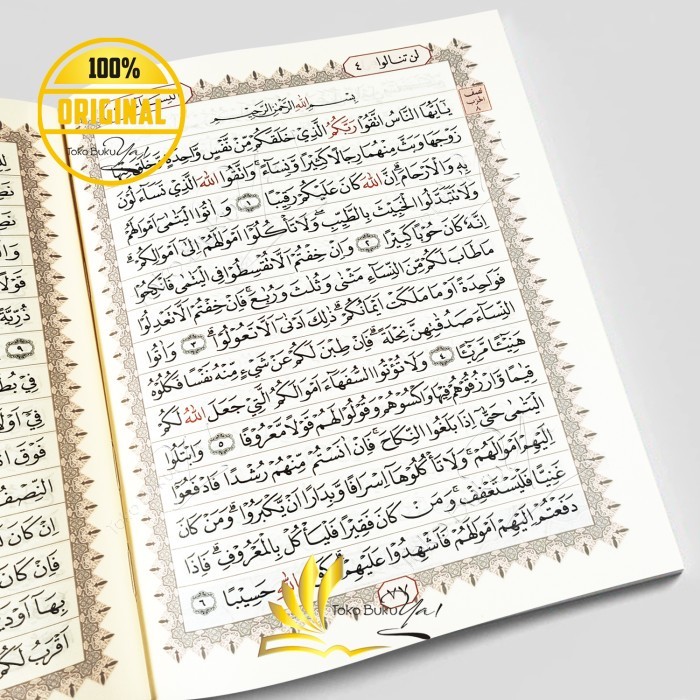 100%
ORIGINAL
Toko Buku Ya!
لن تنالوا ٤
بِسْمِ اللهِ الرَّحْمٰنِ الرَّحِيْمِ
يٰٓاَيُّهَا النَّاسُ اتَّقُوْا رَبَّكُمُ الَّذِيْ خَلَقَكُمْ مِّنْ نَّفْسٍ وَّاحِدَةٍ وَّخَلَقَ مِنْهَا
زَوْجَهَا وَبَثَّ مِنْهُمَا رِجَالًا كَثِيْرًا وَّنِسَاۤءً ۚ وَاتَّقُوا اللهَ الَّذِيْ تَسَاۤءَلُوْنَ
بِهٖ وَالْاَرْحَامَ ۗ اِنَّ اللهَ كَانَ عَلَيْكُمْ رَقِيْبًا ١ وَاٰتُوا الْيَتٰمٰىٓ اَمْوَالَهُمْ
وَلَا تَتَبَدَّلُوا الْخَبِيْثَ بِالطَّيِّبِ ۖ وَلَا تَأْكُلُوْٓا اَمْوَالَهُمْ اِلٰٓى اَمْوَالِكُمْ ۗ
اِنَّهٗ كَانَ حُوْبًا كَبِيْرًا ٢ وَاِنْ خِفْتُمْ اَلَّا تُقْسِطُوْا فِى الْيَتٰمٰى فَانْكِحُوْا
مَا طَابَ لَكُمْ مِّنَ النِّسَاۤءِ مَثْنٰى وَثُلٰثَ وَرُبٰعَ ۚ فَاِنْ خِفْتُمْ اَلَّا تَعْدِلُوْا
فَوَاحِدَةً اَوْ مَا مَلَكَتْ اَيْمَانُكُمْ ۗ ذٰلِكَ اَدْنٰىٓ اَلَّا تَعُوْلُوْا ۗ ٣ وَاٰتُوا
النِّسَاۤءَ صَدُقٰتِهِنَّ نِحْلَةً ۗ فَاِنْ طِبْنَ لَكُمْ عَنْ شَيْءٍ مِّنْهُ نَفْسًا فَكُلُوْهُ
هَنِيْۤـًٔا مَّرِيْۤـًٔا ٤ وَلَا تُؤْتُوا السُّفَهَاۤءَ اَمْوَالَكُمُ الَّتِيْ جَعَلَ اللهُ لَكُمْ
قِيٰمًا وَّارْزُقُوْهُمْ فِيْهَا وَاكْسُوْهُمْ وَقُوْلُوْا لَهُمْ قَوْلًا مَّعْرُوْفًا ٥ وَابْتَلُوا
الْيَتٰمٰى حَتّٰىٓ اِذَا بَلَغُوا النِّكَاحَ ۚ فَاِنْ اٰنَسْتُمْ مِّنْهُمْ رُشْدًا فَادْفَعُوْٓا
اِلَيْهِمْ اَمْوَالَهُمْ ۚ وَلَا تَأْكُلُوْهَآ اِسْرَافًا وَّبِدَارًا اَنْ يَّكْبَرُوْا ۗ وَمَنْ كَانَ
غَنِيًّا فَلْيَسْتَعْفِفْ ۚ وَمَنْ كَانَ فَقِيْرًا فَلْيَأْكُلْ بِالْمَعْرُوْفِ ۗ فَاِذَا
دَفَعْتُمْ اِلَيْهِمْ اَمْوَالَهُمْ فَاَشْهِدُوْا عَلَيْهِمْ ۗ اللهِ حَسِيْبًا ٦
٧٧
Toko Buku Ya!